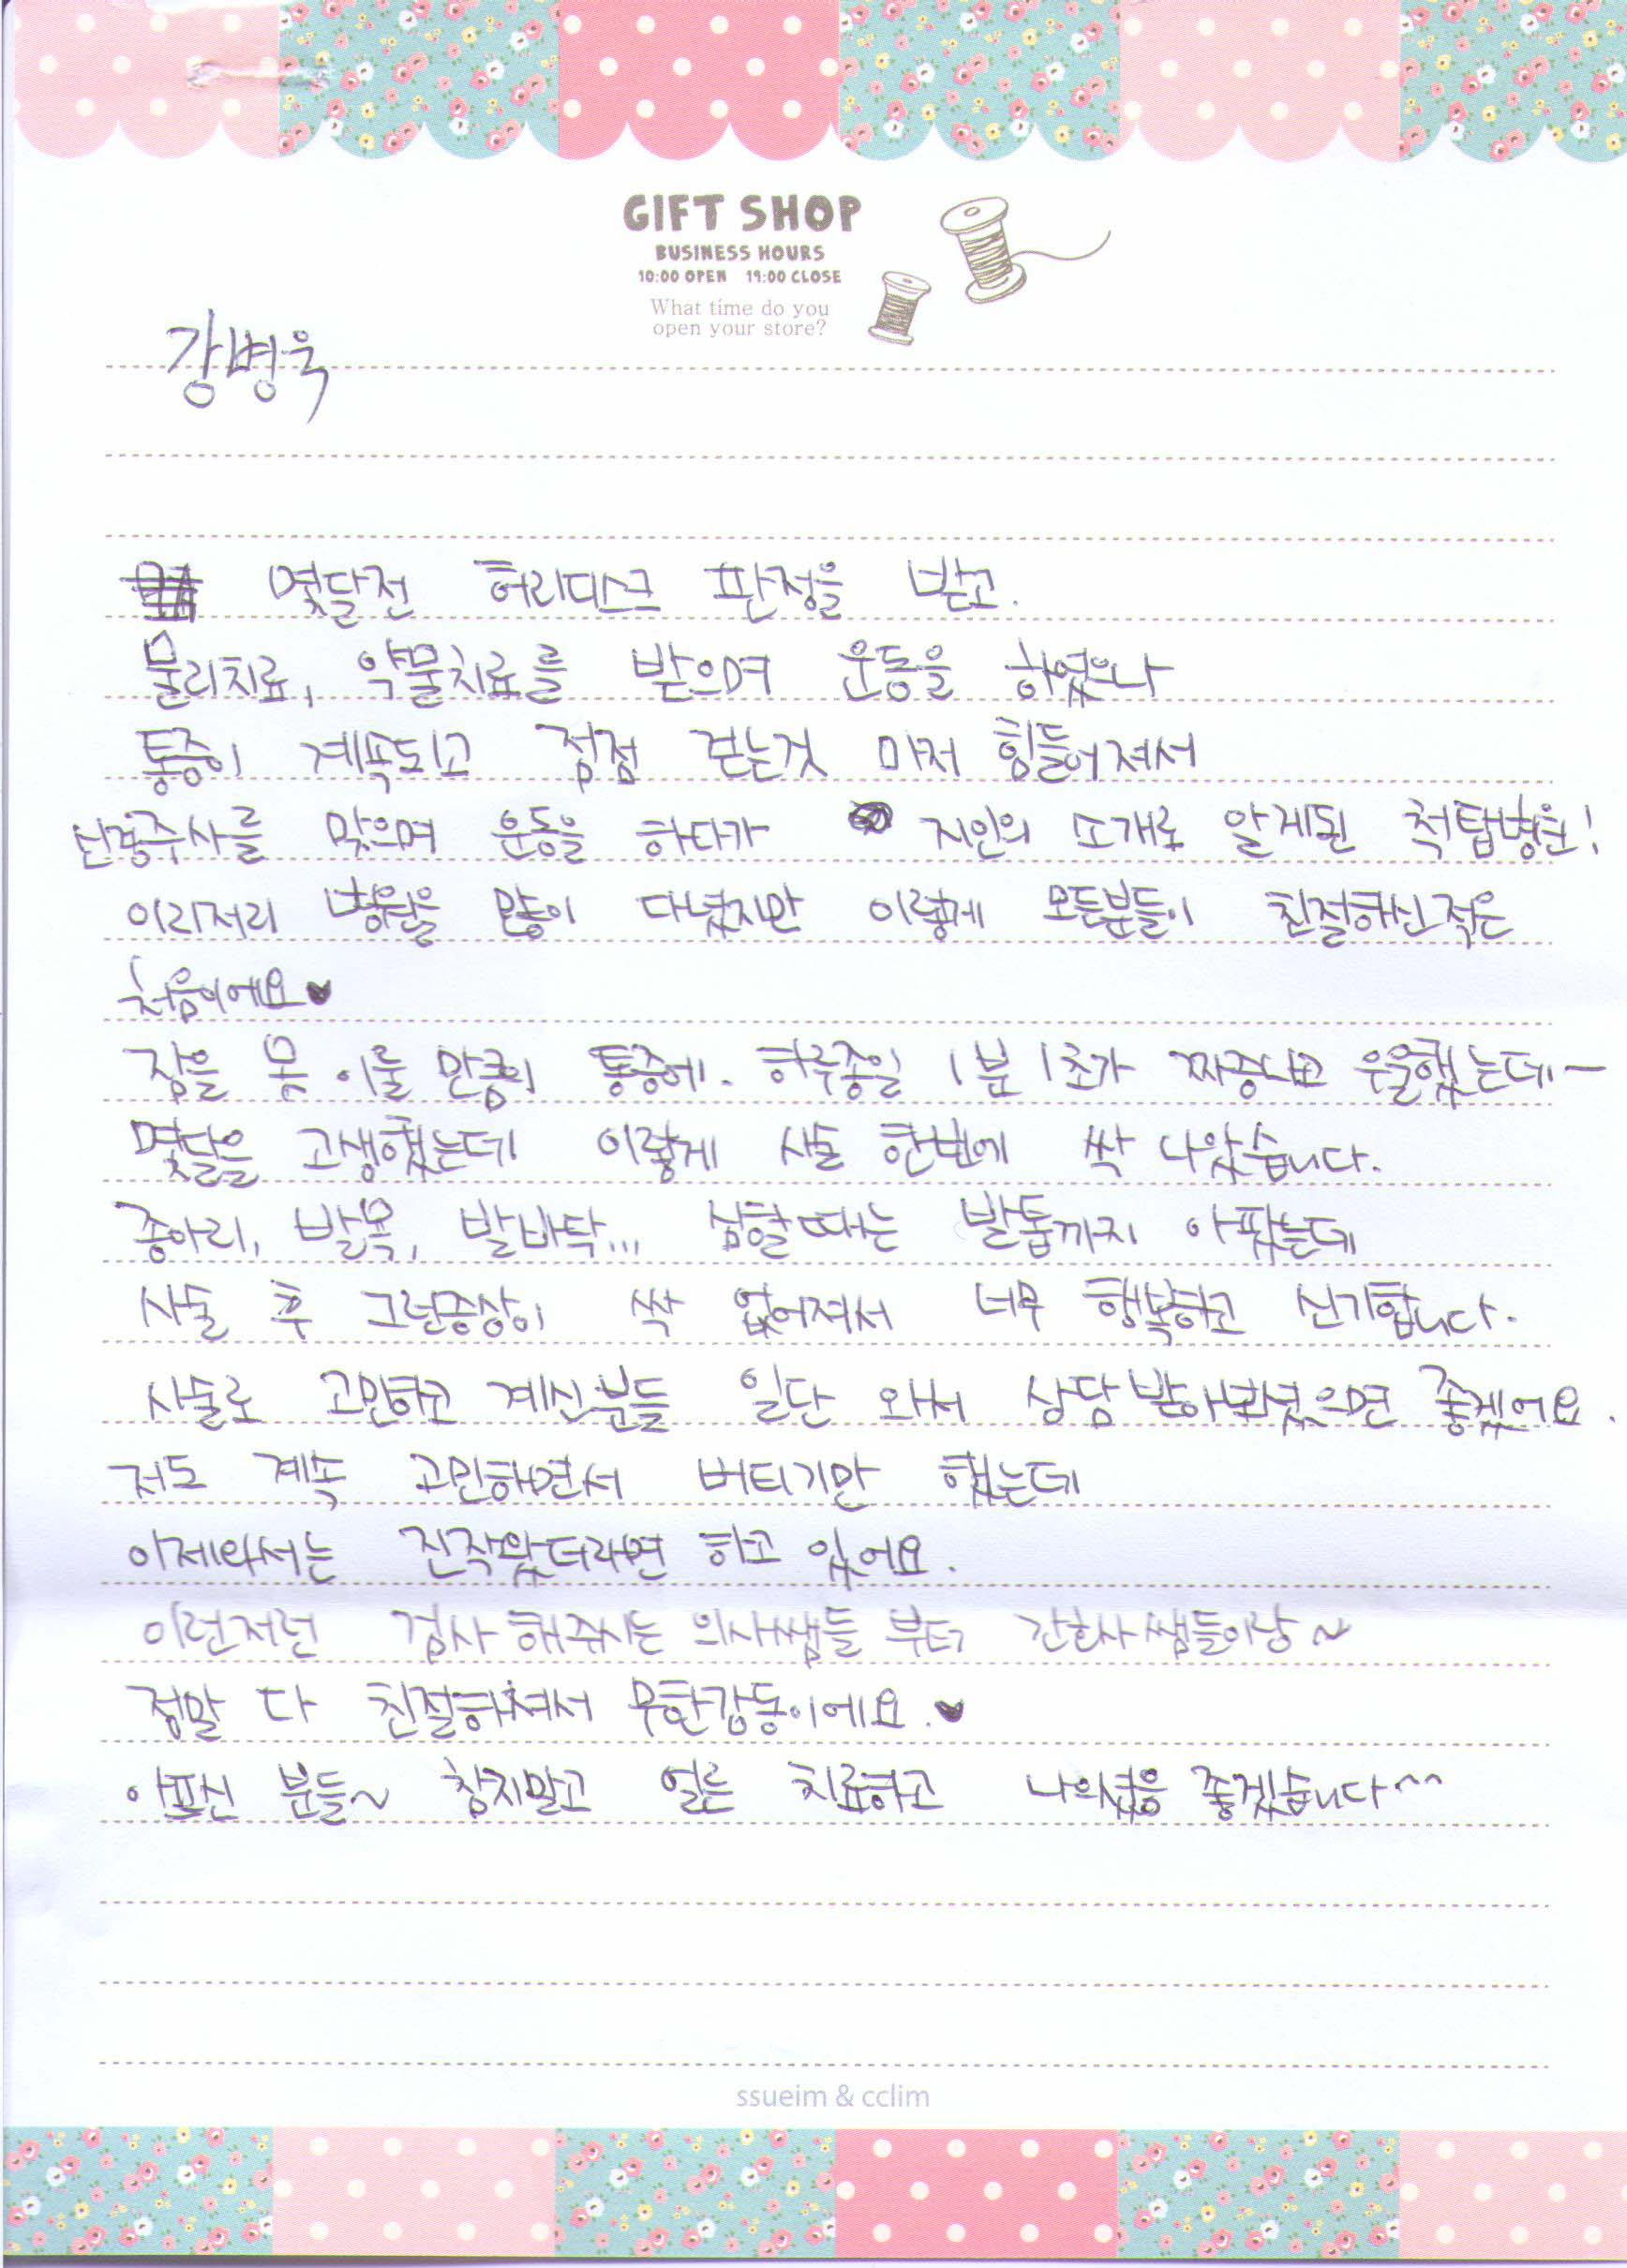 GIFT SHOP
BUSINESS HOURS
10:00 OPEN 19:00 CLOSE
What time do you
open your store?
강병욱
몇달전 허리디스크 판정을 받고.
물리치료, 약물치료를 받으며 운동을 하였으나
통증이 계속되고 점점 걷는것 마저 힘들어져서
진통주사를 맞으며 운동을 하다가 지인의 소개로 알게된 척탑병원!
이리저리 병원을 많이 다녔지만 이렇게 모든분들이 친절하신적은
처음이에요♥
잠을 못 이룰 만큼의 통증에. 하루종일 1분 1초가 짜증나고 우울했는데~
몇달을 고생했는데 이렇게 시술 한번에 싹 나았습니다.
종아리, 발목, 발바닥... 심할때는 발톱까지 아팠는데
시술 후 그런증상이 싹 없어져서 너무 행복하고 신기합니다.
시술로 고민하고 계신분들 일단 와서 상담 받아보셨으면 좋겠어요.
저도 계속 고민하면서 버티기만 했는데
이제와서는 진작왔더라면 하고 있어요.
이런저런 검사 해주시는 의사쌤들 부터 간호사쌤들이랑~
정말 다 친절하셔서 무한감동이에요.♥
아프신 분들~ 참지말고 얼른 치료하고 나으셨음 좋겠습니다^^
ssueim & cclim